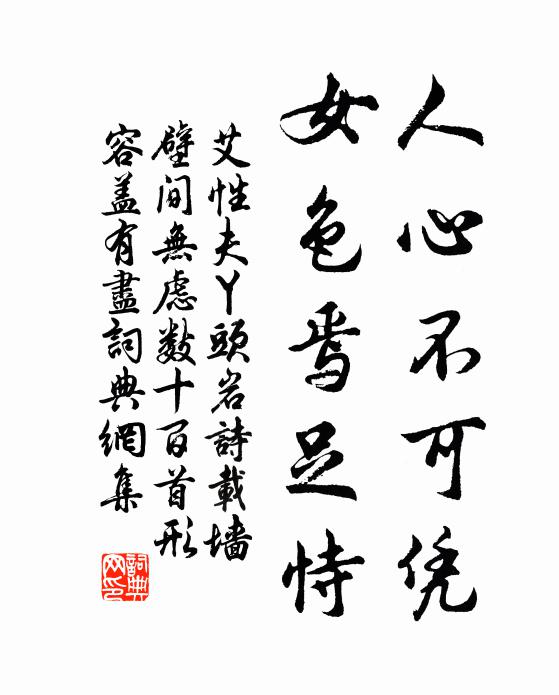 人心不可凭
女色焉足恃
艾性夫丫頭岩詩載墻
壁间無慮数十百首形
容盖有盡詞典網集
詞典網印